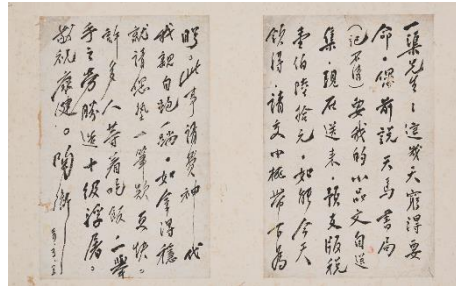 一渠先生：這幾天窮得要
命。你前說天馬書局
（记不清）要我的小品文自選
集，現在送来，預支版税
壹伯陸拾元，如能今天
領得，請交小桃帶下為
盼。此事請費神代
我親自跑一趟。如拿得穩
就請您墊一筆款更快。
許多人等着吃飯，一舉
手之勞勝造十级浮屠。
敬祝康健。陶